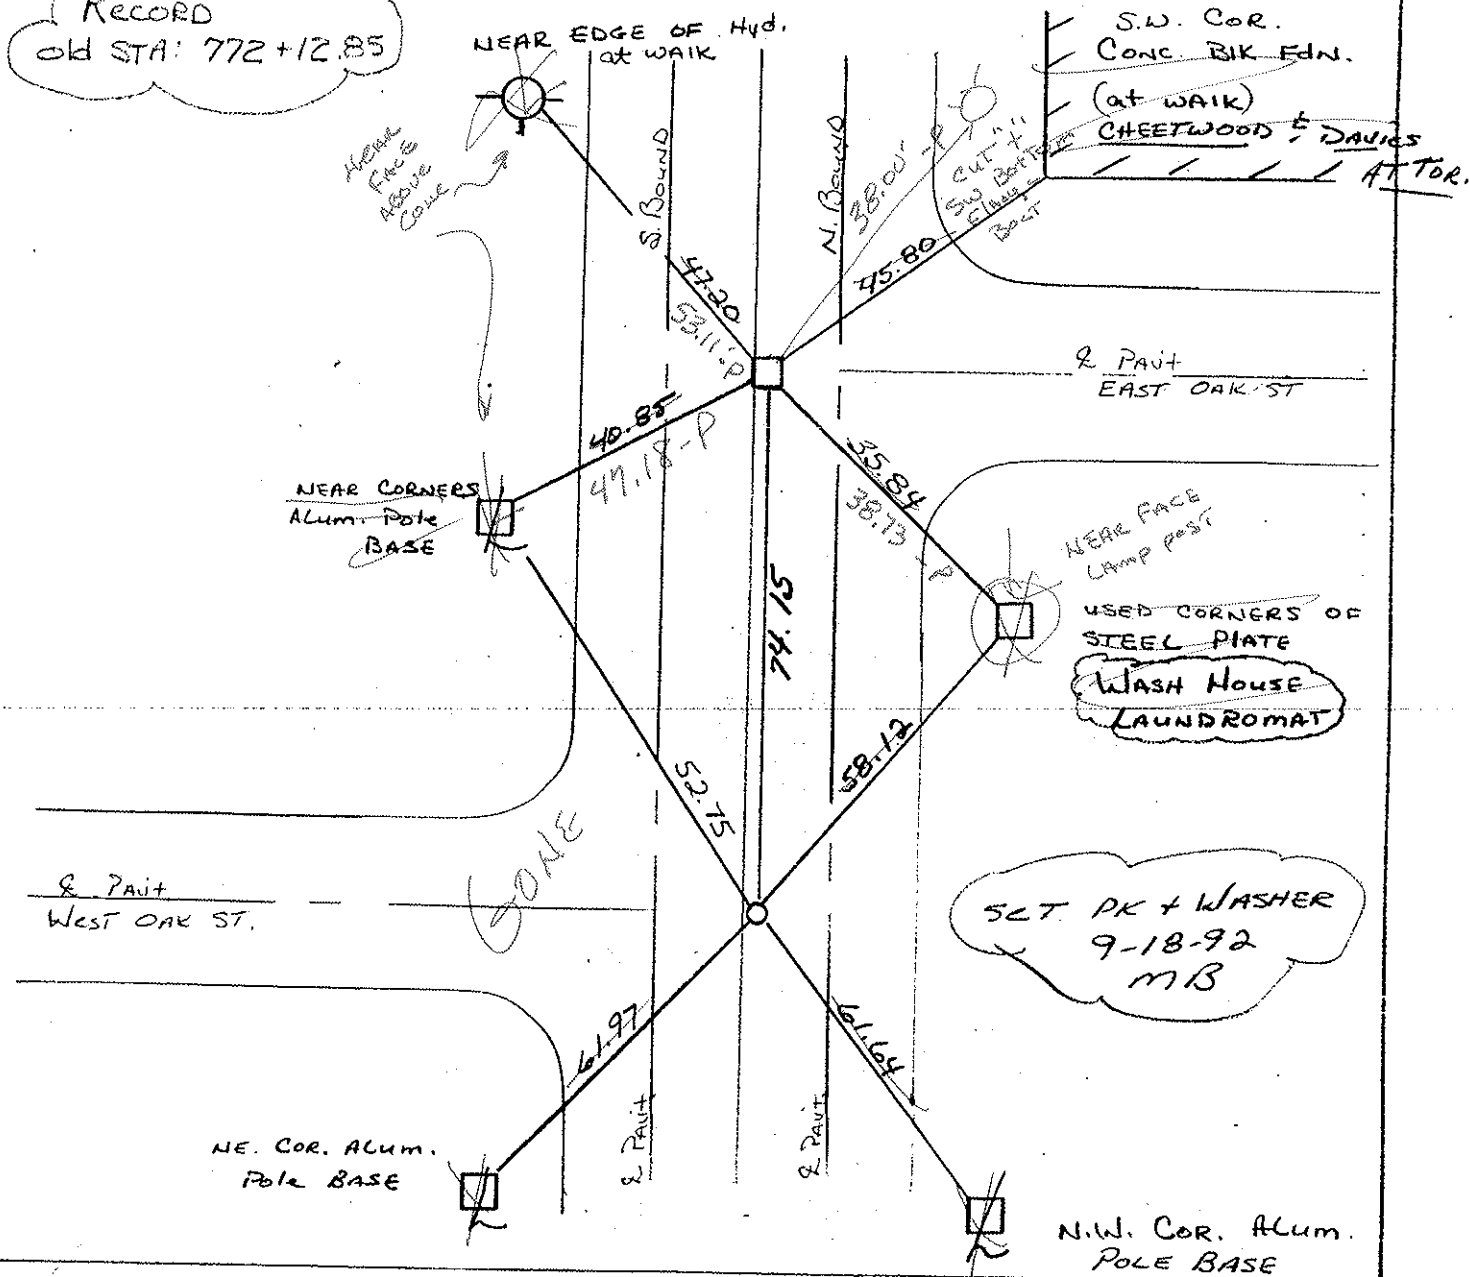 RECORD
old STA: 772+12.85
NEAR EDGE OF Hyd.
at WAIK
S.W. COR.
CONC. BIK FdN.
(at WAIK)
CHEETWOOD & DAVIES
AT TOR.
NEAR
FACE
ABOVE
CONE
S. BOUND
N. BOUND
38.00'-P
CUT "+"
SW
BOLT
45.80
47.20
53.11'-P
℄ PAV't
EAST OAK ST
40.85
47.18-P
35.84
38.73
NEAR CORNERS
ALUM. Pole
BASE
NEAR FACE
LAMP POST
74.15
USED CORNERS OF
STEEL PLATE
WASH HOUSE
LAUNDROMAT
52.75
58.12
GONE
℄ PAV't
WEST OAK ST.
SET PK + WASHER
9-18-92
MB
61.97
61.64
℄ PAV't
℄ PAV't
NE. COR. ALUM.
Pole BASE
N.W. COR. ALUM.
POLE BASE